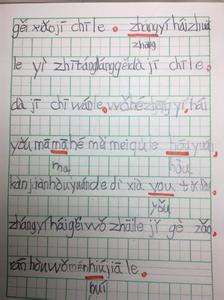 gěi xiǎo jī chī le。zhāng yí hái zhuā
zhāng
le yì zhī tángláng gě dà jī chī le。
dà jī chī wán le。wǒ hé zhāng yí hái
yǒu mā mā hé mèi mei qù le hóu yuán
ma hóu
kàn jiàn hóu yuán de dì xià you
yǒu
zhāng yí hái gěi wǒ zhāi le jǐ gè zǎo
rán hòu wǒ mén huí jiā le。
huí